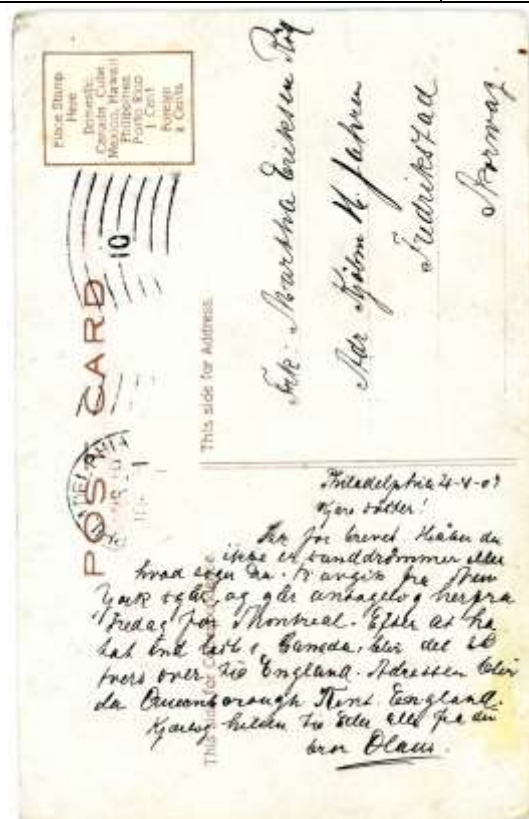 POST CARD
Place Stamp
Here
Domestic
Canada, Cuba
Mexico, Hawaii
Philipines
Porto Rico
1 Cent
Foreign
2 Cents
10
This side for Address.
Frk. Martha Eriksen
Adr Kjøbm H. Jahren
Fredrikstad
Norway.
This side for
Philadelphia
Kjære søster!
Tak for brevet. Haaber du
ikke er vanddrømmer eller
hvad siger du. Vi avgik fra New
York igår og går antagelig herfra
Fredag for Montreal. Efter at ha
tat ind last i Canada, blir det
tvers over til England. Adressen blir
da Queenborough Kent England.
Kjærlig hilsen til eder alle fra din
bror Olaus.